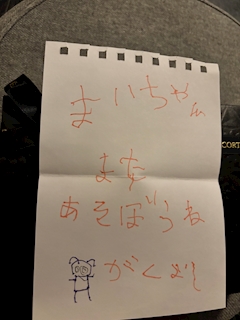 まいちゃん
また
あそぼうね
がくより
CORT